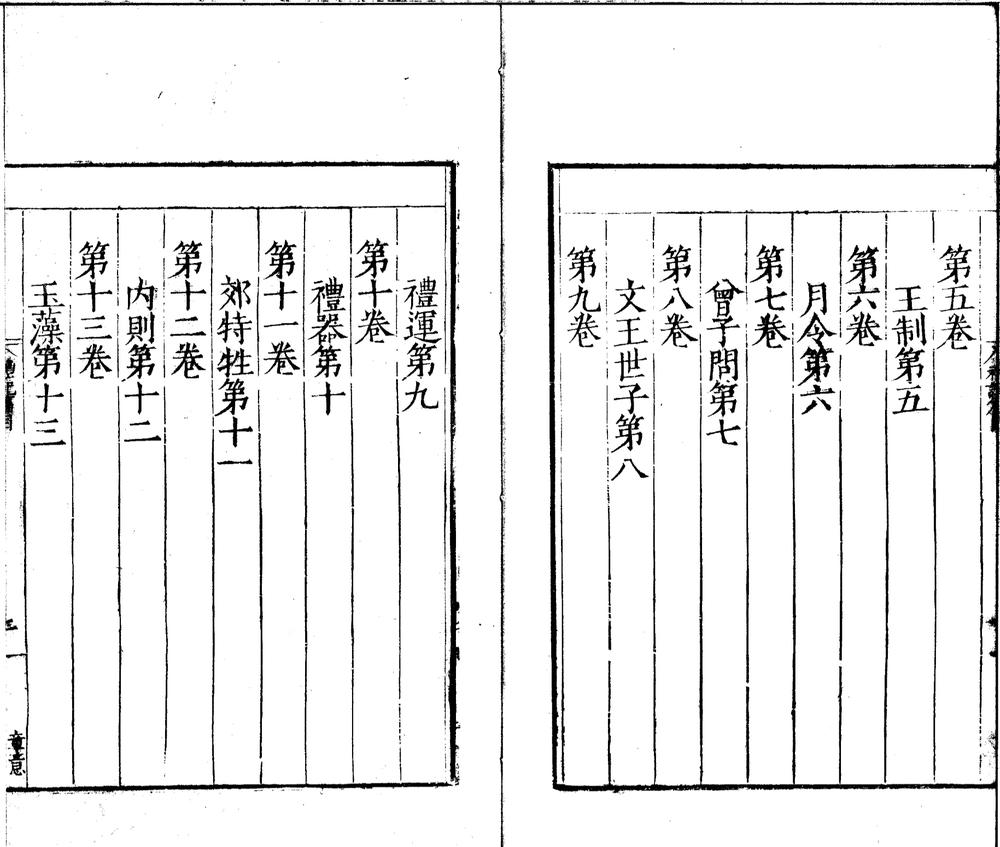 第五卷
王制第五
第六卷
月令第六
第七卷
曾子問第七
第八卷
文王世子第八
第九卷
禮運第九
第十卷
禮器第十
第十一卷
郊特牲第十一
第十二卷
内則第十二
第十三卷
玉藻第十三
章意